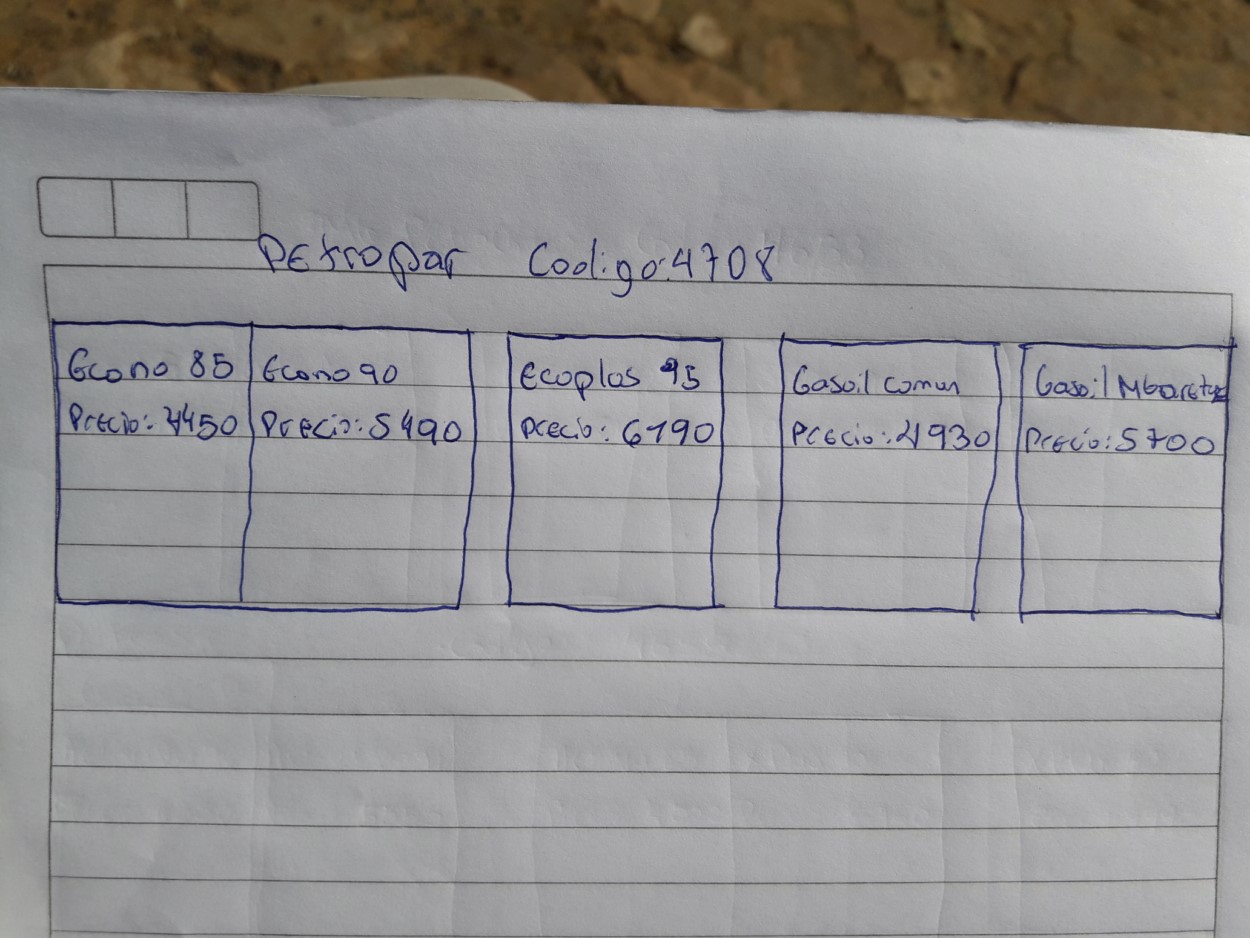 Petropar Codigo:4708
Econo 85
Precio: 4450
Econo 90
Precio: 5490
Ecoplas 95
Precio: 6190
Gasoil comun
Precio: 4930
Gasoil Mbarete
Precio: 5700